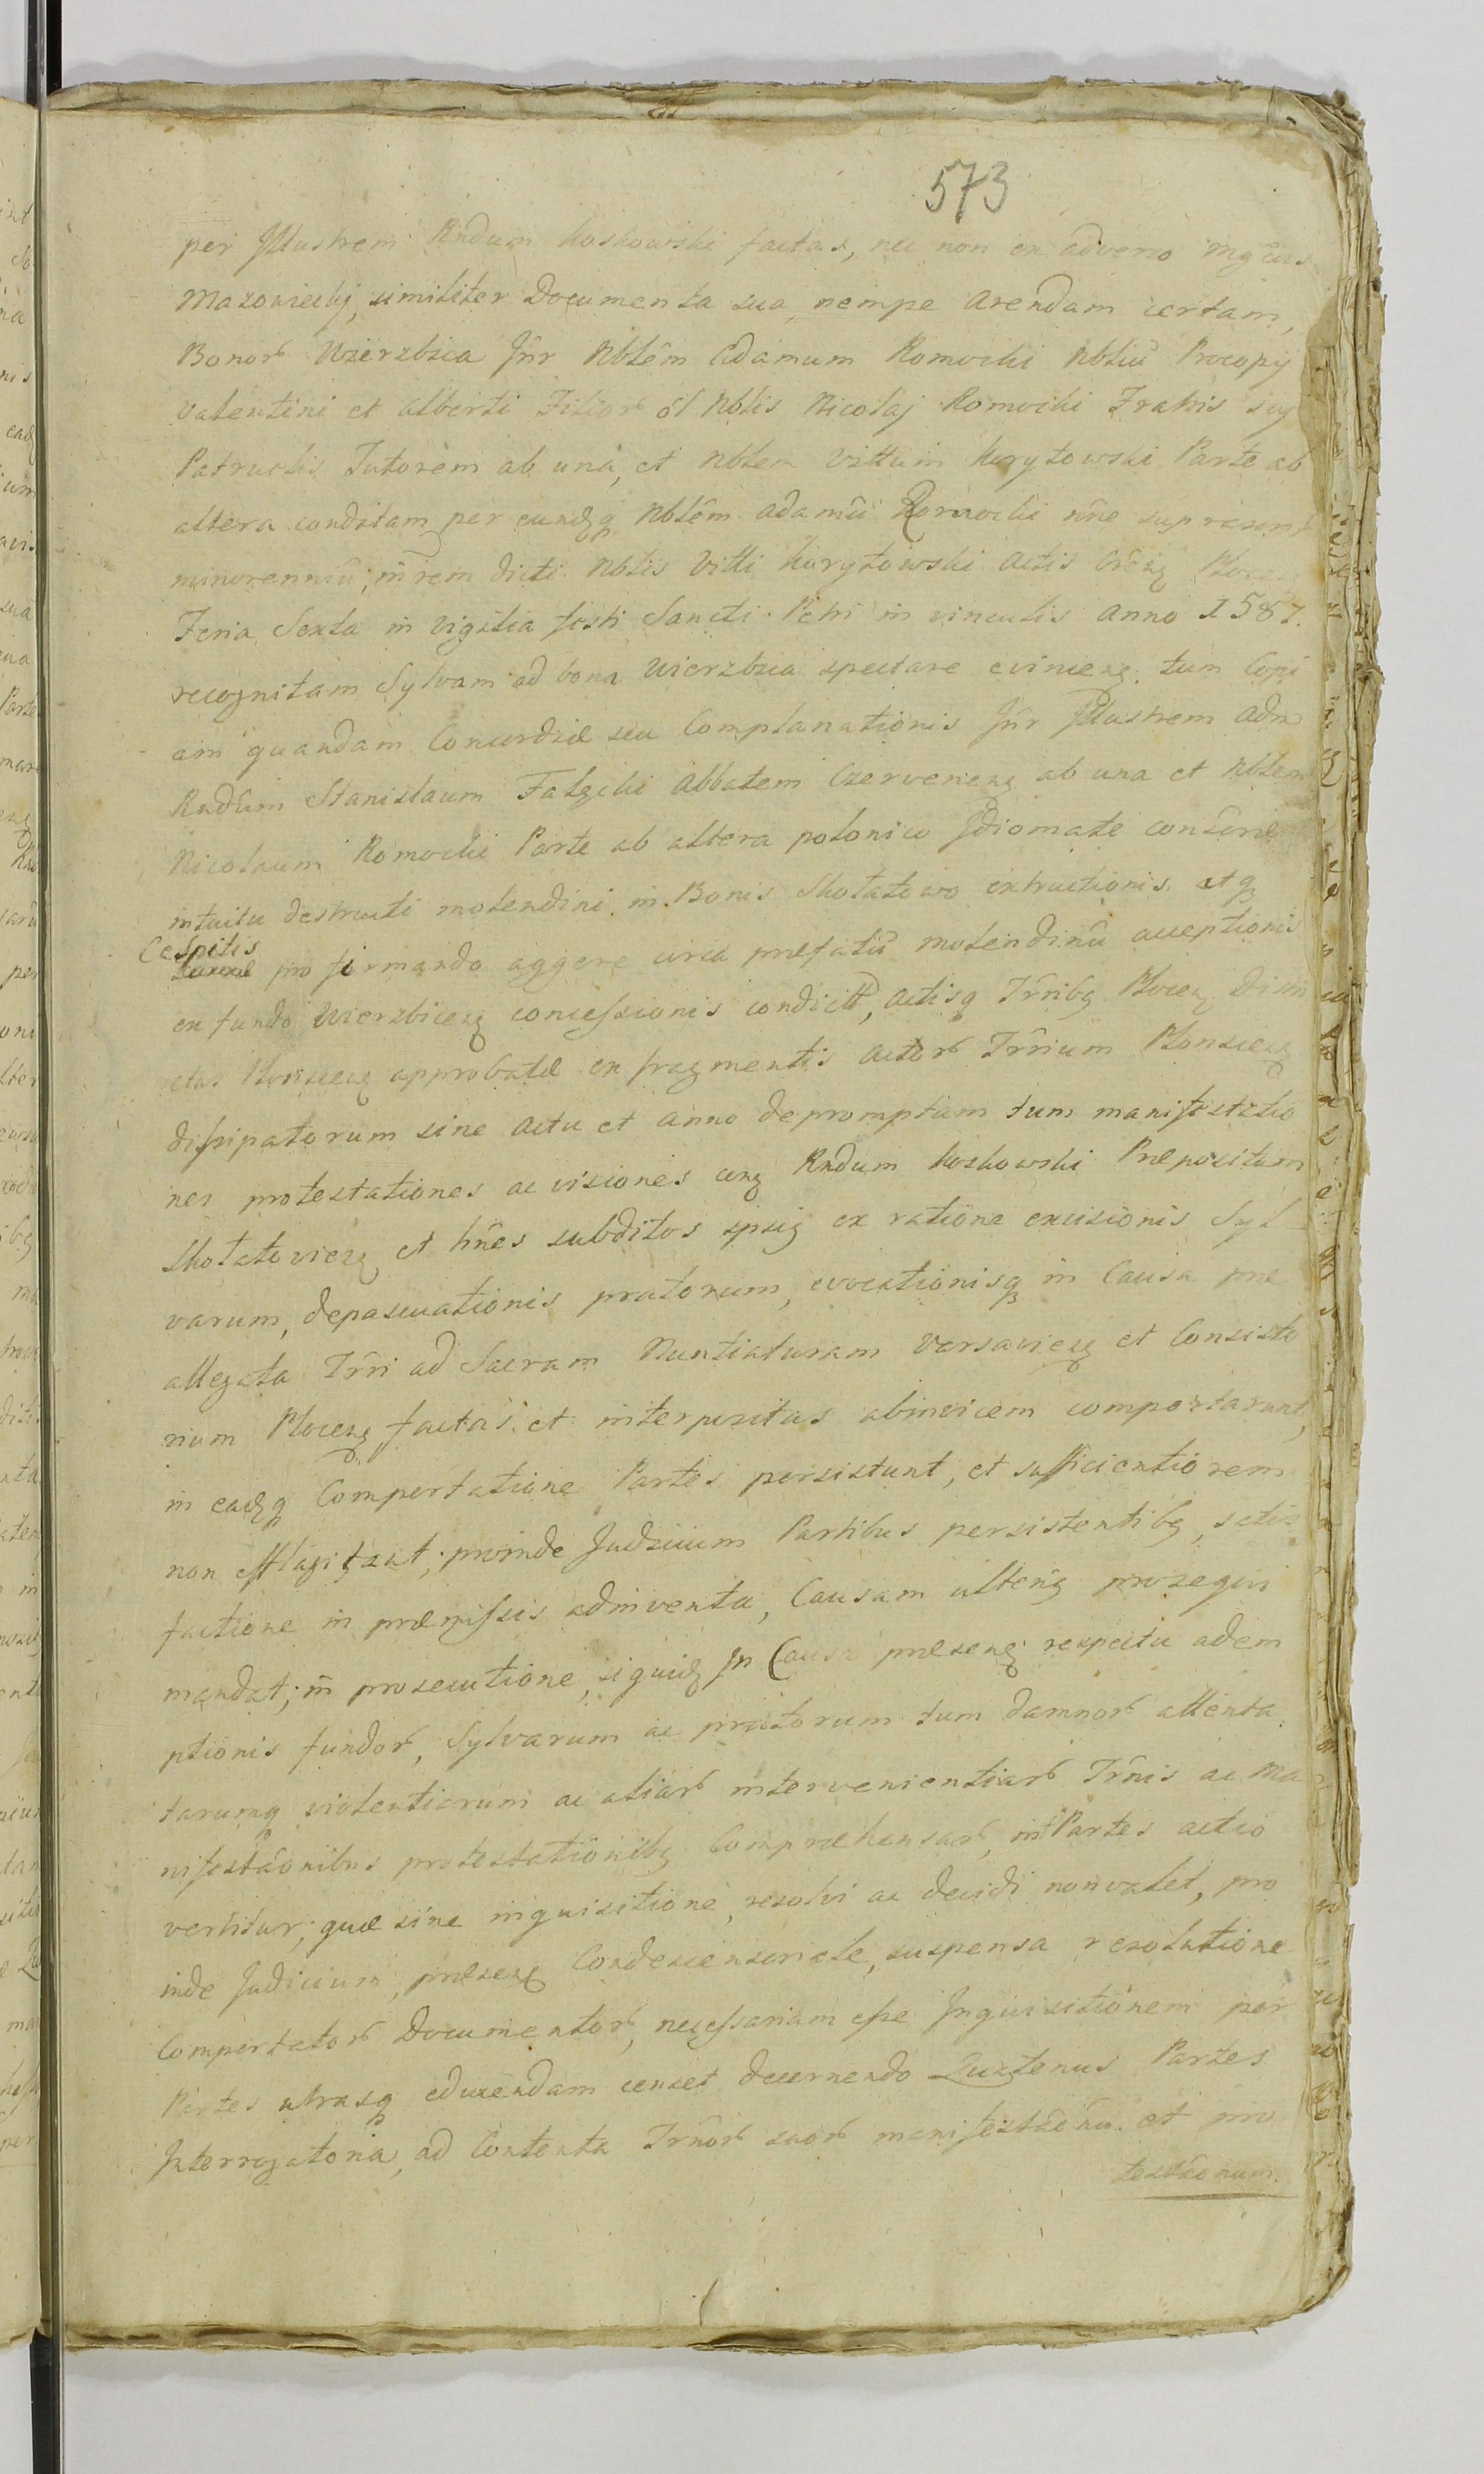 573
per Jllustrem Rndum Koskowski factas, nec non ex adverso Mgcus
Mazowiecky, similiter Documenta sua, nempe Arendam certam,
Bonorb Wierzbica Jnr Nblêm Adamum Romocki Nbliu Procopy
Valentini et Alberti Filiorb ol Nblis Nicolaj Romocki Fratris suy
Patruelis Tutorem ab una, et Nblem Vittum Korytowski Parte ab
altera conditam per eundq Nblêm Adamu Romocki nñe
minorenniu, in rem dicti Nblis Vitti Korytowski Actis
Feria Sexta in vigilia festi Sancti Petri in vinculis Anno 1587.
recognitam Sylvam ad bona Wierzbica spectare evincenz, tum Copi
am quandam Concordiæ seu Complanationis Jnr Jllustrem Adm
Rndum Stanislaum Falęcki Abbatem Czervenenz ab una et Nblem
Nicolaum Romocki Parte ab altera polonico Jdiomate
intuitu destructi molendini in Bonis Skotatowo extructionis, etq
Cespitis pro firmando aggere circa præfatu molendinu acceptionis
ex fundo Wierzbicenz concessionis condictæ, Actisq Trribq Plocenz
Plonscenz approbatæ ex fragmentis Actorb Trrium Plonscenz
dissipatorum sine Actu et Anno depromptam tum manifestatio
nes protestationes ac visiones Rndum Koskowski Præpositum
Skotatovienz et hnes subditos ipsiq ex ratione excisionis Syl
varum, depascuationis pratorum, evocationisq in Causa præ
allegata Trri ad Sacram Nuntiaturam Varsavienz et Consisto
rium Plocenz factas et interpositas abinvicem comportarunt,
in eadq Comportatione Partes persistunt, et sufficientiorem
non efflagitant; proinde Judicium Partibus persistentibq, satis
factione in præmissis adinventa, Causam ulterig prosequi
mandat; in prosecutione, siquidq Jn Causa præsenz respectu adem
ptionis fundorb, Sylvarum ac pratorum tum damnorb attenta
tarumq violentiarum ac aliarb intervenientiarb Trrnis ac Ma
nifestaõnibus protestationibq Compræhensarb, int Partes actio
vertitur; quæ sine inquisitione, resolvi ac decidi non valet, pro
inde Judicium, præsenz Condescensoriale, suspensa resolutione
Comportatorb Documentorb, necessariam esse Jnquisitionem per
Partes utrasq educendam censet decernendo Quatenus Partes
Jnterrogatoria, ad Contenta Trrnorb suorb manifestaõnu et pro
testaõnum.